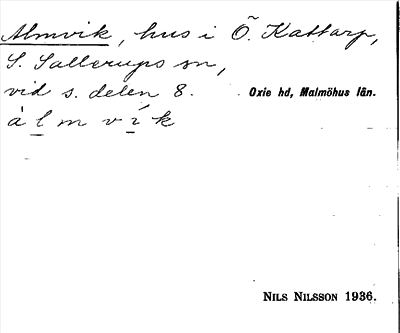 Almvik, hus i Ö. Kattarp,
S. Sallerups sn,
vid s. delen 8. Oxie hd, Malmöhus län.
à l m v í k
NILS NILSSON 1936.